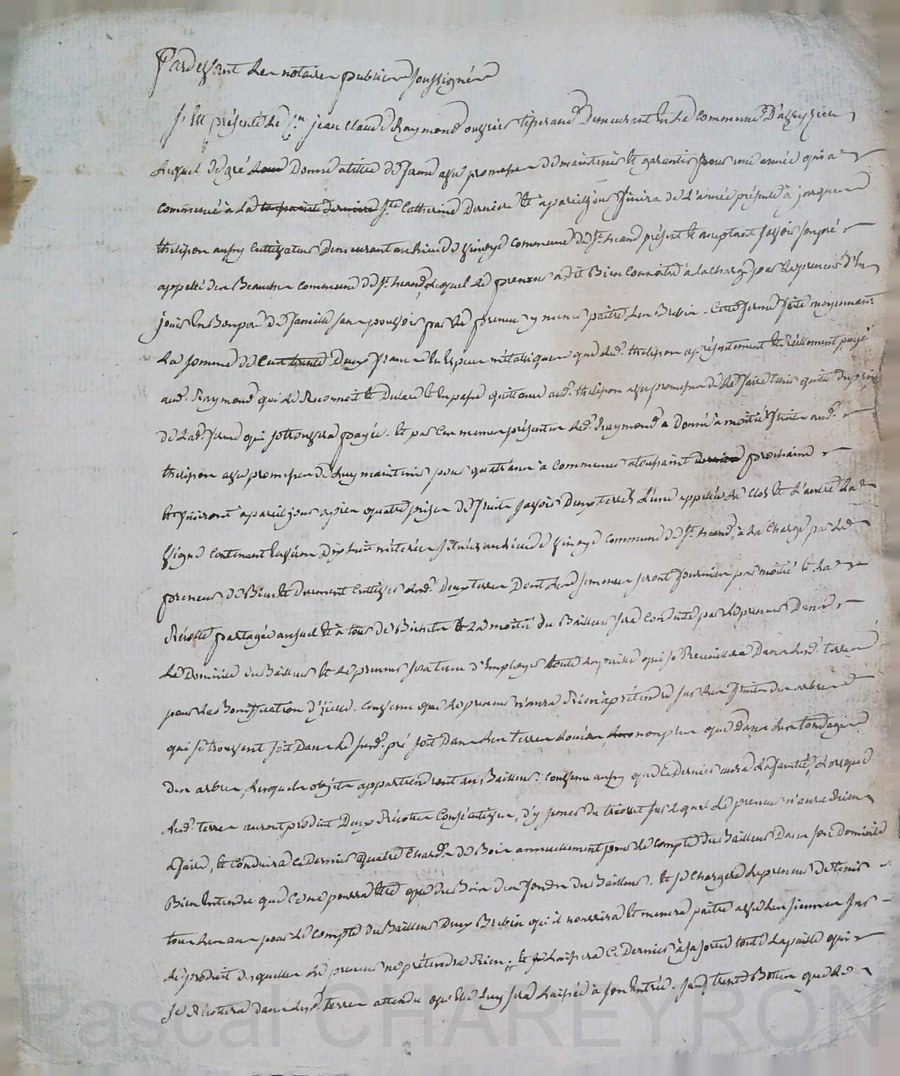 Pardevant les notaires publics soussignés
s'est présenté le c.en jean Claude Raymond ouvrier tisserand demeurant en la commune D'aveyzieu
lequel de gré a Donné a titre de ferme avec promesse de maintenir et garantir pour une année qui a
commencé à la toussaint dernière S.te Catherine Dernière et à pareil jour finira de l'année présente à jacques
thelisson aussy Cultivateur demeurant au lieu de commune de S.t heand présent et acceptant savoir son pré
appellé des Beaumes commune de S.t heand, lequel led. preneur a dit Bien Connoitre à la charge par le preneur d'en
jouir en Bon père de famille sans pouvoir par led. preneur y mener paître des Brebis. Cette ferme faite moyennant
la somme de Cent trente deux francs en Espèces métalliques que led. thelisson a présentement et réellement payé
aud. Raymond qui le Reconnoit le Déclare et en passe quittance aud. thelisson avec promesse de le faire tenir quitte du prix
de lad. ferme qui se trouvera payée. et par les mêmes présentes led. Raymond a Donné à moitié fruits aud.
thelisson avec promesse de luy maintenir pour quatre ans à commencer a toussaint dernier prochaine
et finiront à pareil jour après quatre prises de fruits savoir Deux terres l'une appellée le Clos et l'autre la
Vigne Contenant Environ Dix huit méterées situées au lieu de commune de S.t heand, à la Charge par le
preneur de Bien et duement Cultiver lesd. Deux terres Dont les semences seront fournies par moitié et la
Récolte partagée au sueil et la moitié du Bailleur sera Conduite par le preneur Dans
le Domicile du Bailleur et le preneur sera tenu d'Employer toute la paille qui se Recueillera Dans lesd. terres
pour la Bonification d'icelles. Convenu que le preneur n'aura Rien à prétendre sur les fruits des arbres
qui se trouvent soit Dans le susd. pré soit dans les terres non plus que dans les tondages
des arbres, lesquels objets appartiendront au Bailleur. Convenu aussy que Ce dernier aura la faculté, lorsque
lesd. terres auront produit Deux Récoltes Consécutives, d'y semer du treffle sur lequel le preneur n'aura Rien
à faire, et Conduira ce Dernier quatre Chards de Bois annuellement pour le compte du Bailleur Dans son Domicile
Bien Entendu que Ce ne pourra être que du Bois des fonds du Bailleur. et se Chargera le preneur de tenir
tous les ans pour le Compte du Bailleur Deux Brebis qu'il nourrira et menera paître avec les siennes sur
le produit desquelles led. preneur ne prétendra Rien ; et laissera ce Dernier à sa sortie toute la paille qui
se Récoltera Dans lesd. terres attendu qu'elle luy sera laissée à son Entrée. sauf trente Bottes que le
Pascal CHAREYRON